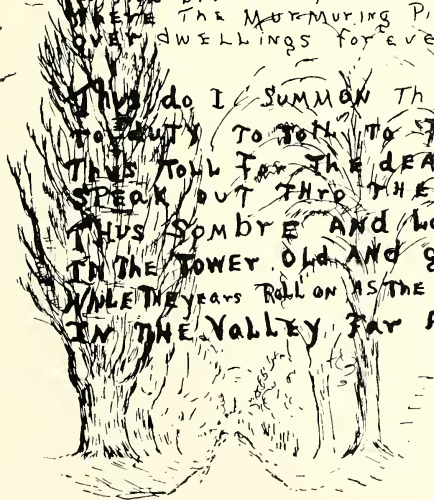 Where The Murmuring Pi
over dwellings foreve
Thus do I SUMMON Th
to duty To Toll To T
Thus Toll For The deA
SPEAK OUT THRO THE
THUS SombrE AND Lo
IN The TOWER Old AND g
WhiLE THE years Roll ON AS THE
IN THE VaLLEy Far A